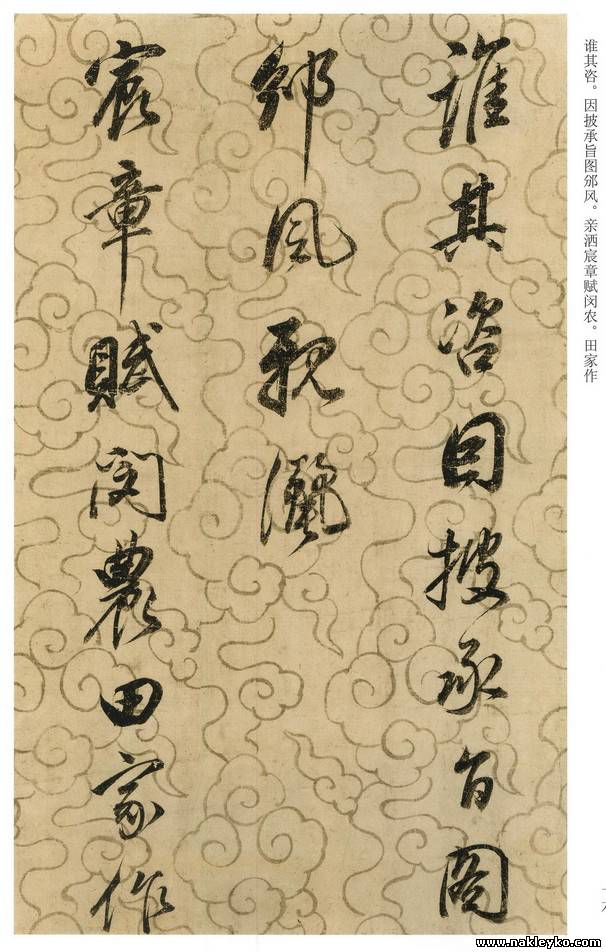 誰其咨因披承旨圖
邠風親灑
宸章賦閔農田家作
谁其咨。因披承旨图邠风。亲洒宸章赋闵农。田家作
www.nakleyko.com